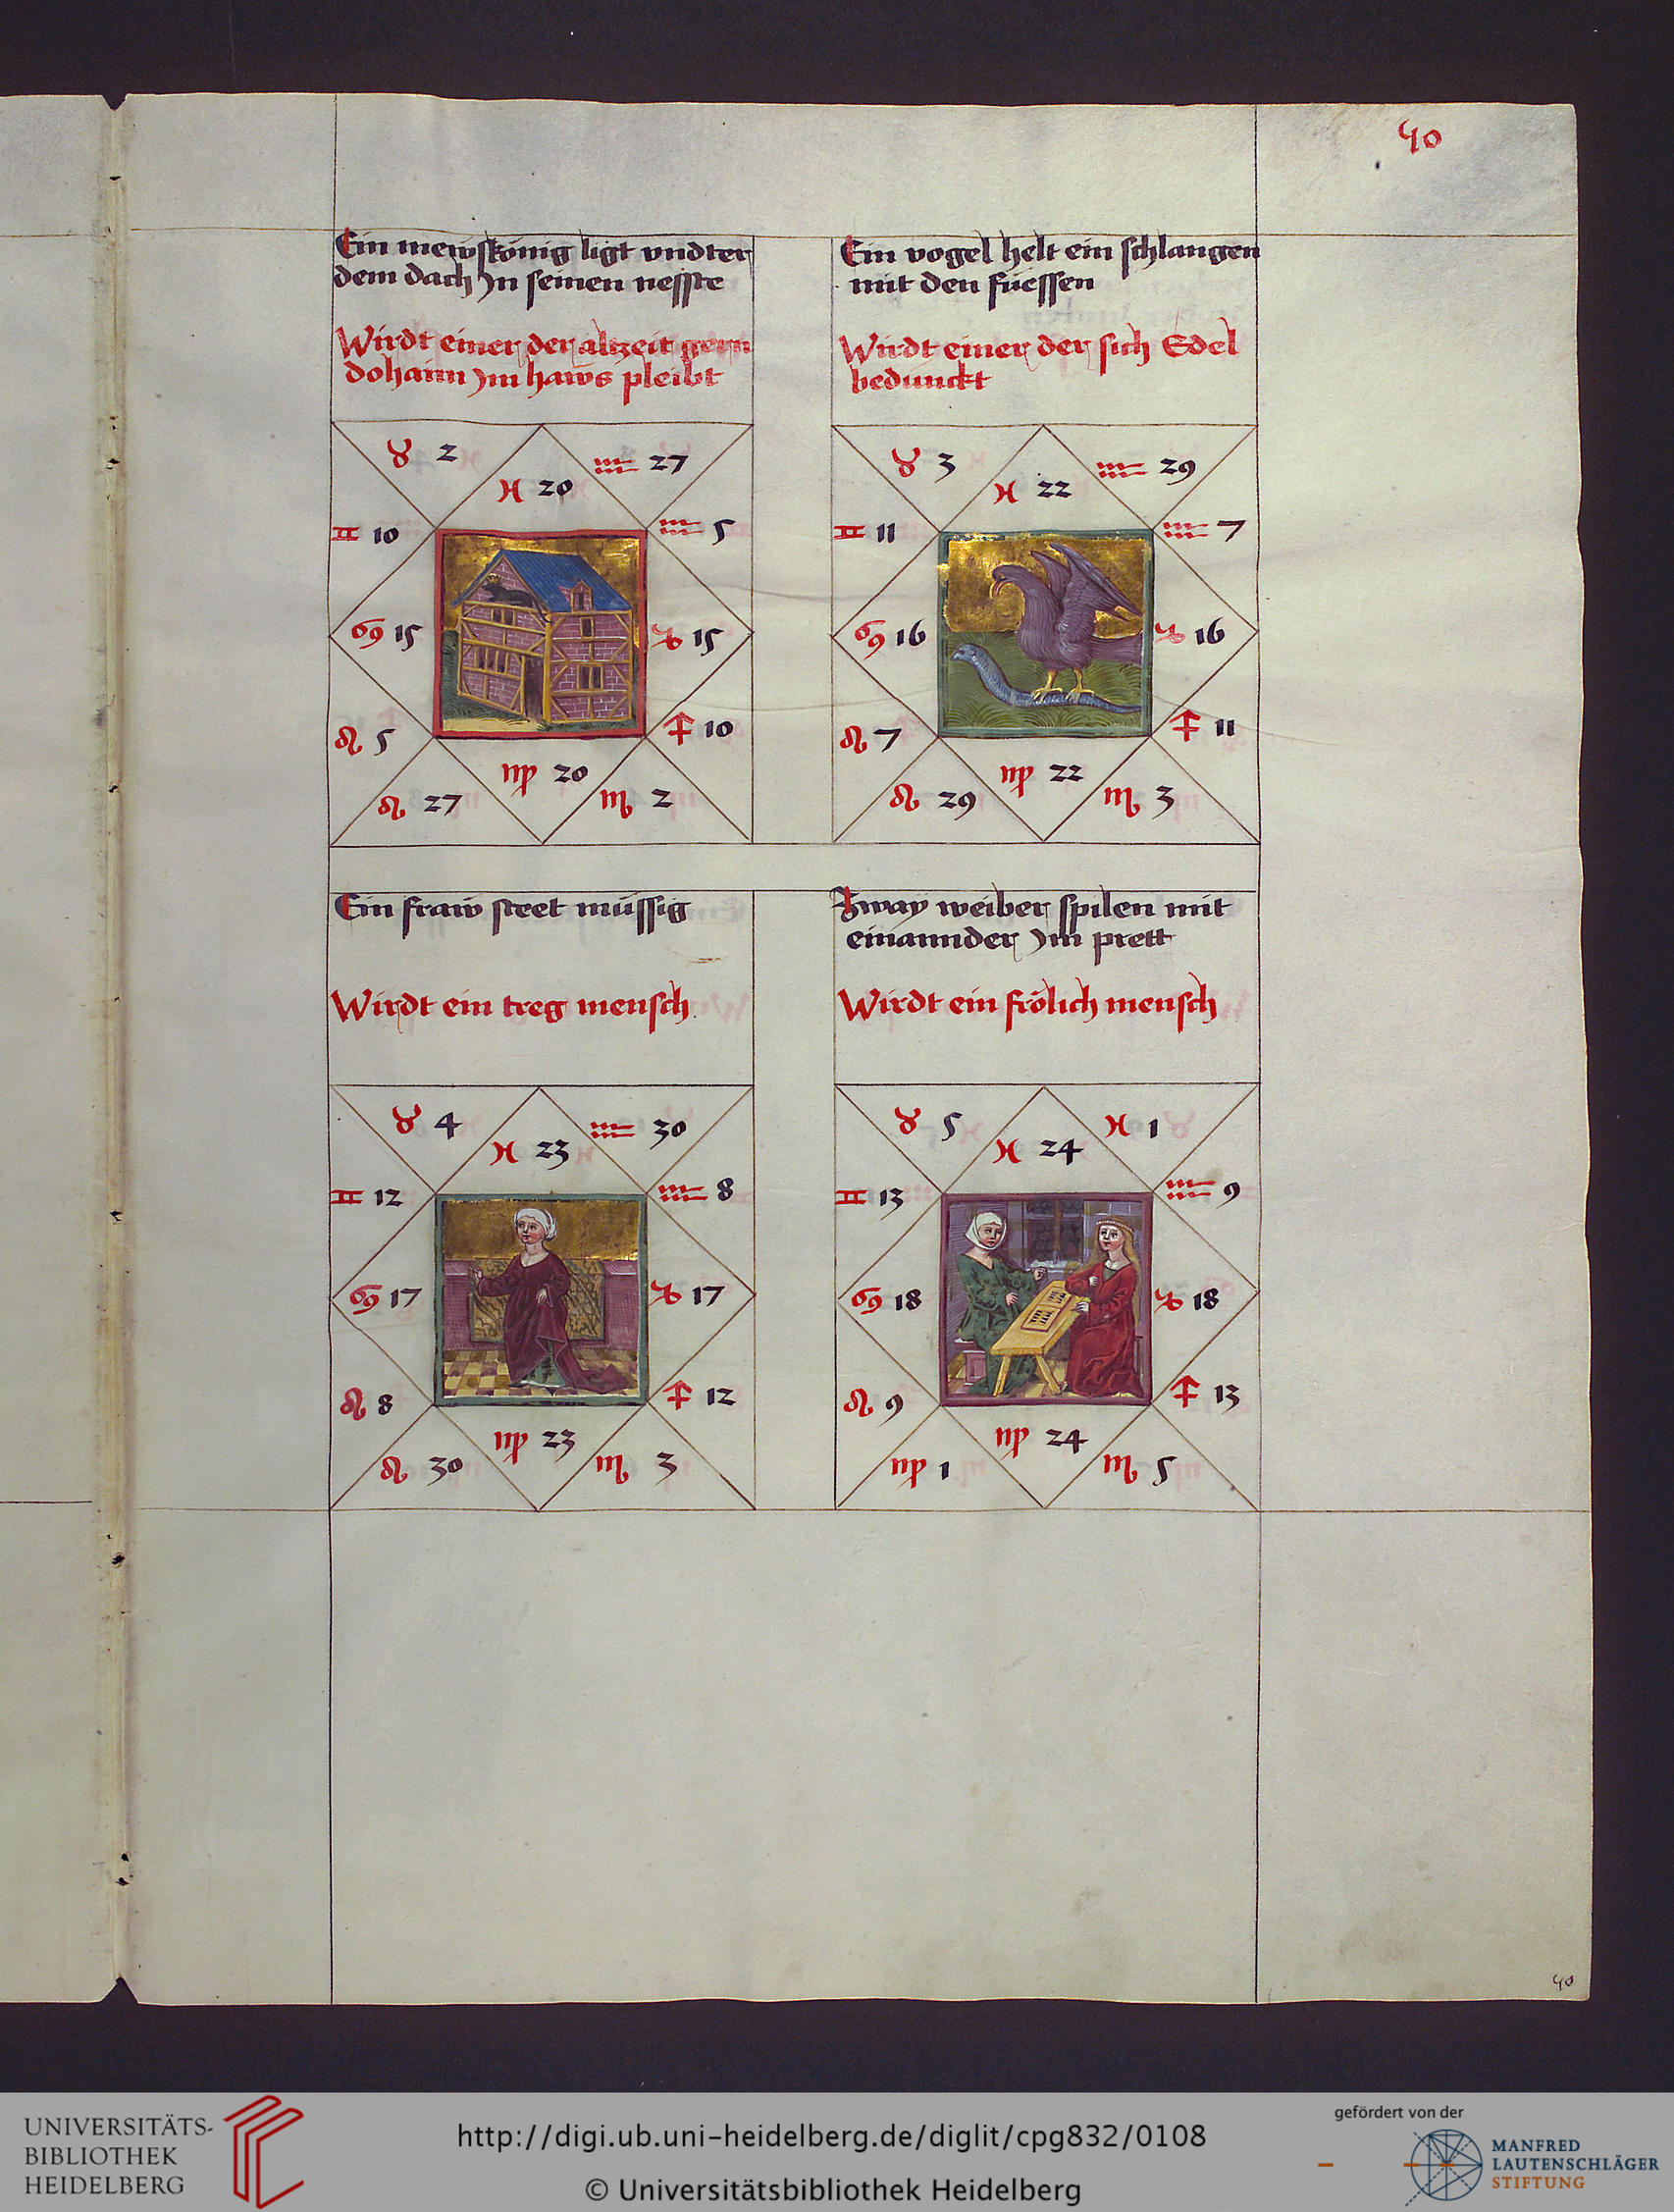 40
Ein mewskönig ligt vndter
dem dach Jn seinen nesste
Wirdt einer der alzeit gern
dohaim Jm haws pleibt
♉ 2
♒ 27
♓ 20
♊ 10
♒ 5
♋ 15
♑ 15
♌ 5
♐ 10
♍ 20
♌ 27
♏ 2
Ein vogel helt ein schlangen
mit den füessen
Wirdt einer der sich Edel
bedunckt
♉ 3
♒ 29
♓ 22
♊ 11
♒ 7
♋ 16
♑ 16
♌ 7
♐ 11
♍ 22
♌ 29
♏ 3
Ein fraw steet müssig
Wirdt ein treg mensch
♉ 4
♒ 30
♓ 23
♊ 12
♒ 8
♋ 17
♑ 17
♌ 8
♐ 12
♍ 23
♌ 30
♏ 3
Zway weiber spilen mit
einannder Jm prett
Wirdt ein frölich mensch
♉ 5
♓ 1
♓ 24
♊ 13
♒ 9
♋ 18
♑ 18
♌ 9
♐ 13
♍ 24
♍ 1
♏ 5
40
UNIVERSITÄTS-
BIBLIOTHEK
HEIDELBERG
http://digi.ub.uni-heidelberg.de/diglit/cpg832/0108
© Universitätsbibliothek Heidelberg
gefördert von der
MANFRED
LAUTENSCHLÄGER
STIFTUNG